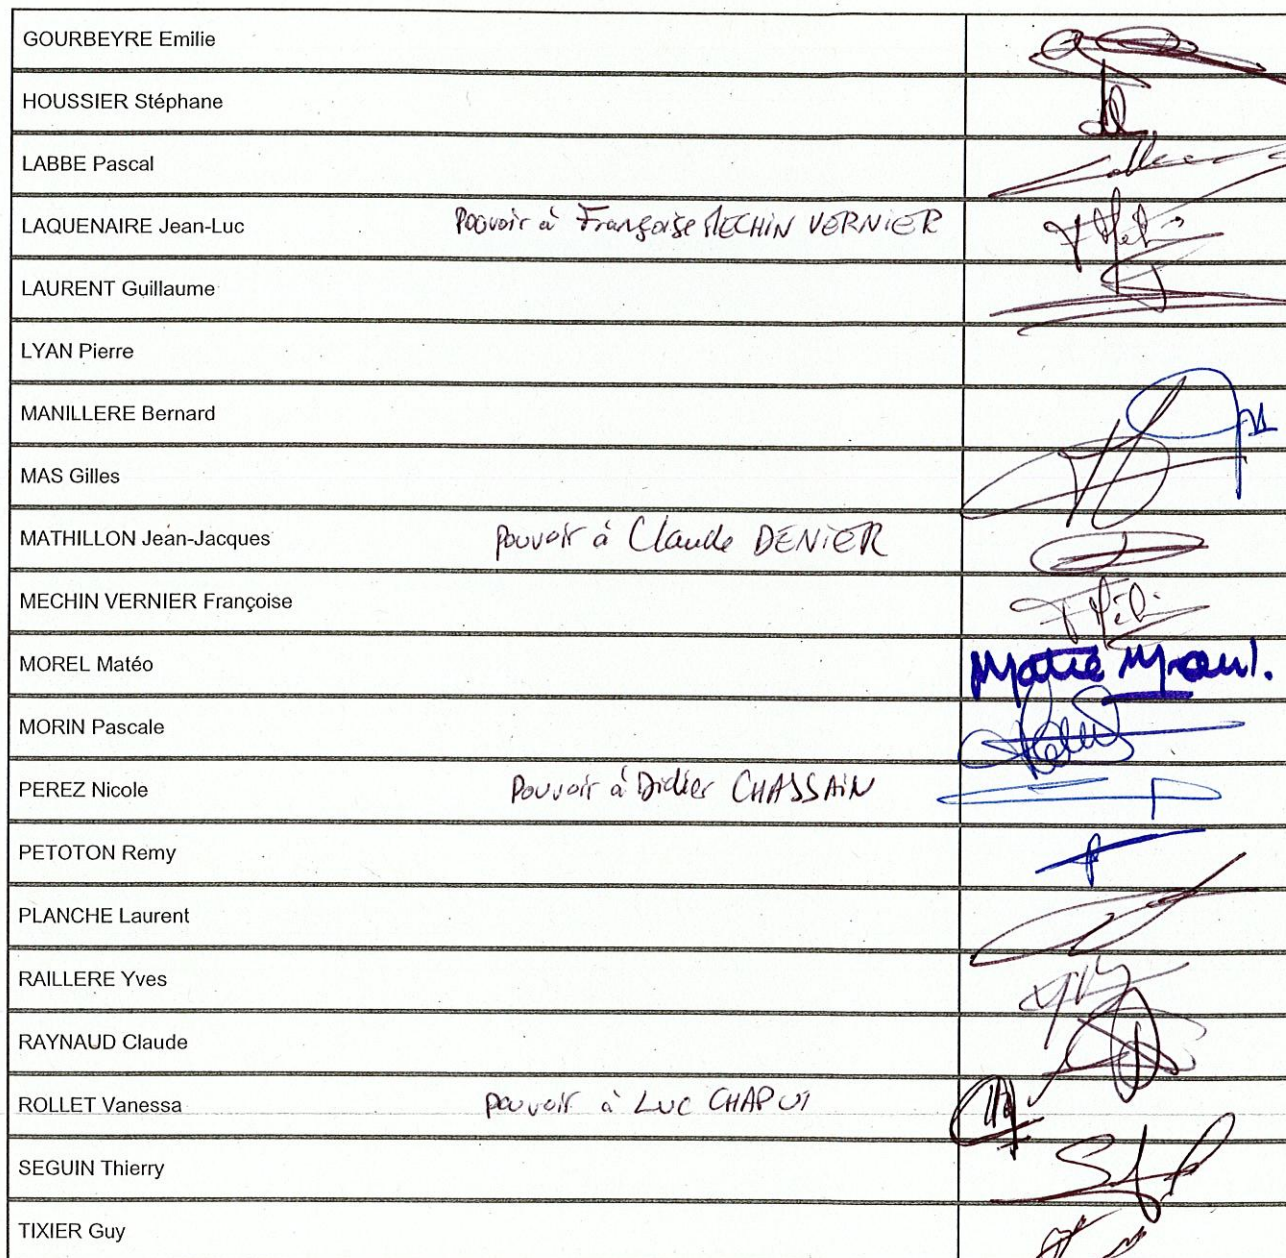 GOURBEYRE Emilie
HOUSSIER Stéphane
LABBE Pascal
LAQUENAIRE Jean-Luc Pouvoir à Françoise MECHIN VERNIER
LAURENT Guillaume
LYAN Pierre
MANILLERE Bernard
MAS Gilles
MATHILLON Jean-Jacques pouvoir à Claude DENIER
MECHIN VERNIER Françoise
MOREL Matéo
MORIN Pascale
PEREZ Nicole Pouvoir à Didier CHASSAIN
PETOTON Remy
PLANCHE Laurent
RAILLERE Yves
RAYNAUD Claude
ROLLET Vanessa pouvoir à Luc CHAPUI
SEGUIN Thierry
TIXIER Guy